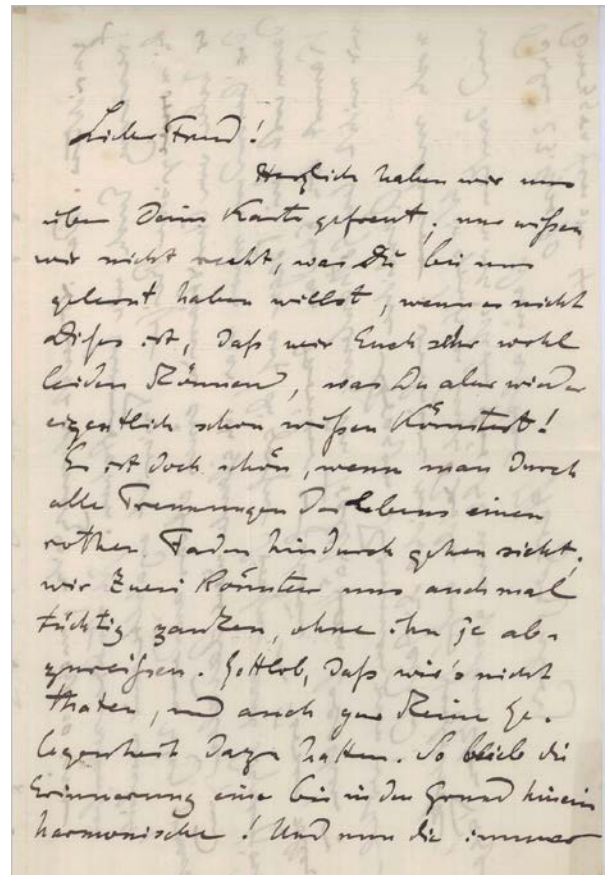 Lieber Freund!
Herzlich haben wir uns
über Deine Karte gefreut; nur wißen
wir nicht recht, was Du bei uns
gelernt haben willst, wenn es nicht
Dieses ist, daß wir Euch sehr wohl
leiden können, was Du aber wieder
eigentlich schon wißen könntest!
Es ist doch schön, wenn man durch
alle Trennungen des Lebens einen
rothen Faden hindurch gehen sieht;
wir zwei könnten uns auch mal
tüchtig zanken, ohne ihn je ab-
zureißen. Gottlob, daß wir's nicht
thaten, und auch gar keine Ge-
legenheit dazu hatten. So blieb die
Erinnerung eine bis in den Grund hinein
harmonische! Und nun die immer